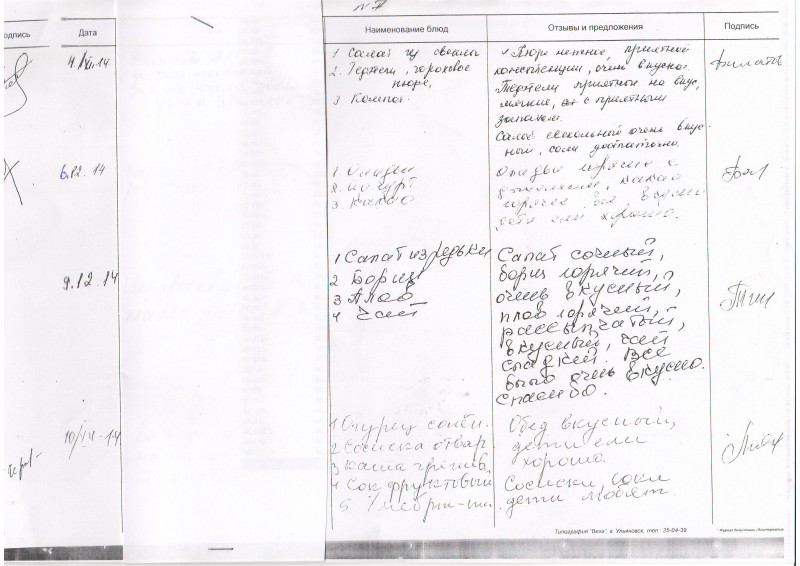 №7
одпись
Дата
Наименование блюд
Отзывы и предложения
Подпись
4.XII.14
1 Салат из свеклы
2. Тефтели, гороховое
пюре,
3 Компот.
1 Пюре нежное, приятной
консистенции, очень вкусное.
Тефтели приятные на вкус,
мягкие, с приятным
запахом.
Салат свекольный очень вкус-
ный, соли достаточно.
Филатов
6.12.14
1 Оладьи
2. йогурт
3 какао
Оладьи горячие с
какао
горячее все вкусно
дети ели хорошо.
9.12.14
1 Салат из редьки
2 Борщ
3 Плов
4 Чай
Салат сочный,
борщ горячий,
очень вкусный,
плов горячий,
рассыпчатый,
вкусный, чай
сладкий. Все
было очень вкусно.
Спасибо.
10/XII-14
1 Огурец солён.
2 Сосиска отвар
3 Каша гречнев
4 Сок фруктовый
5
Обед вкусный,
дети ели
хорошо.
Сосиски, соки
дети любят.
Типография "Вега", г. Ульяновск, тел.: 35-04-39